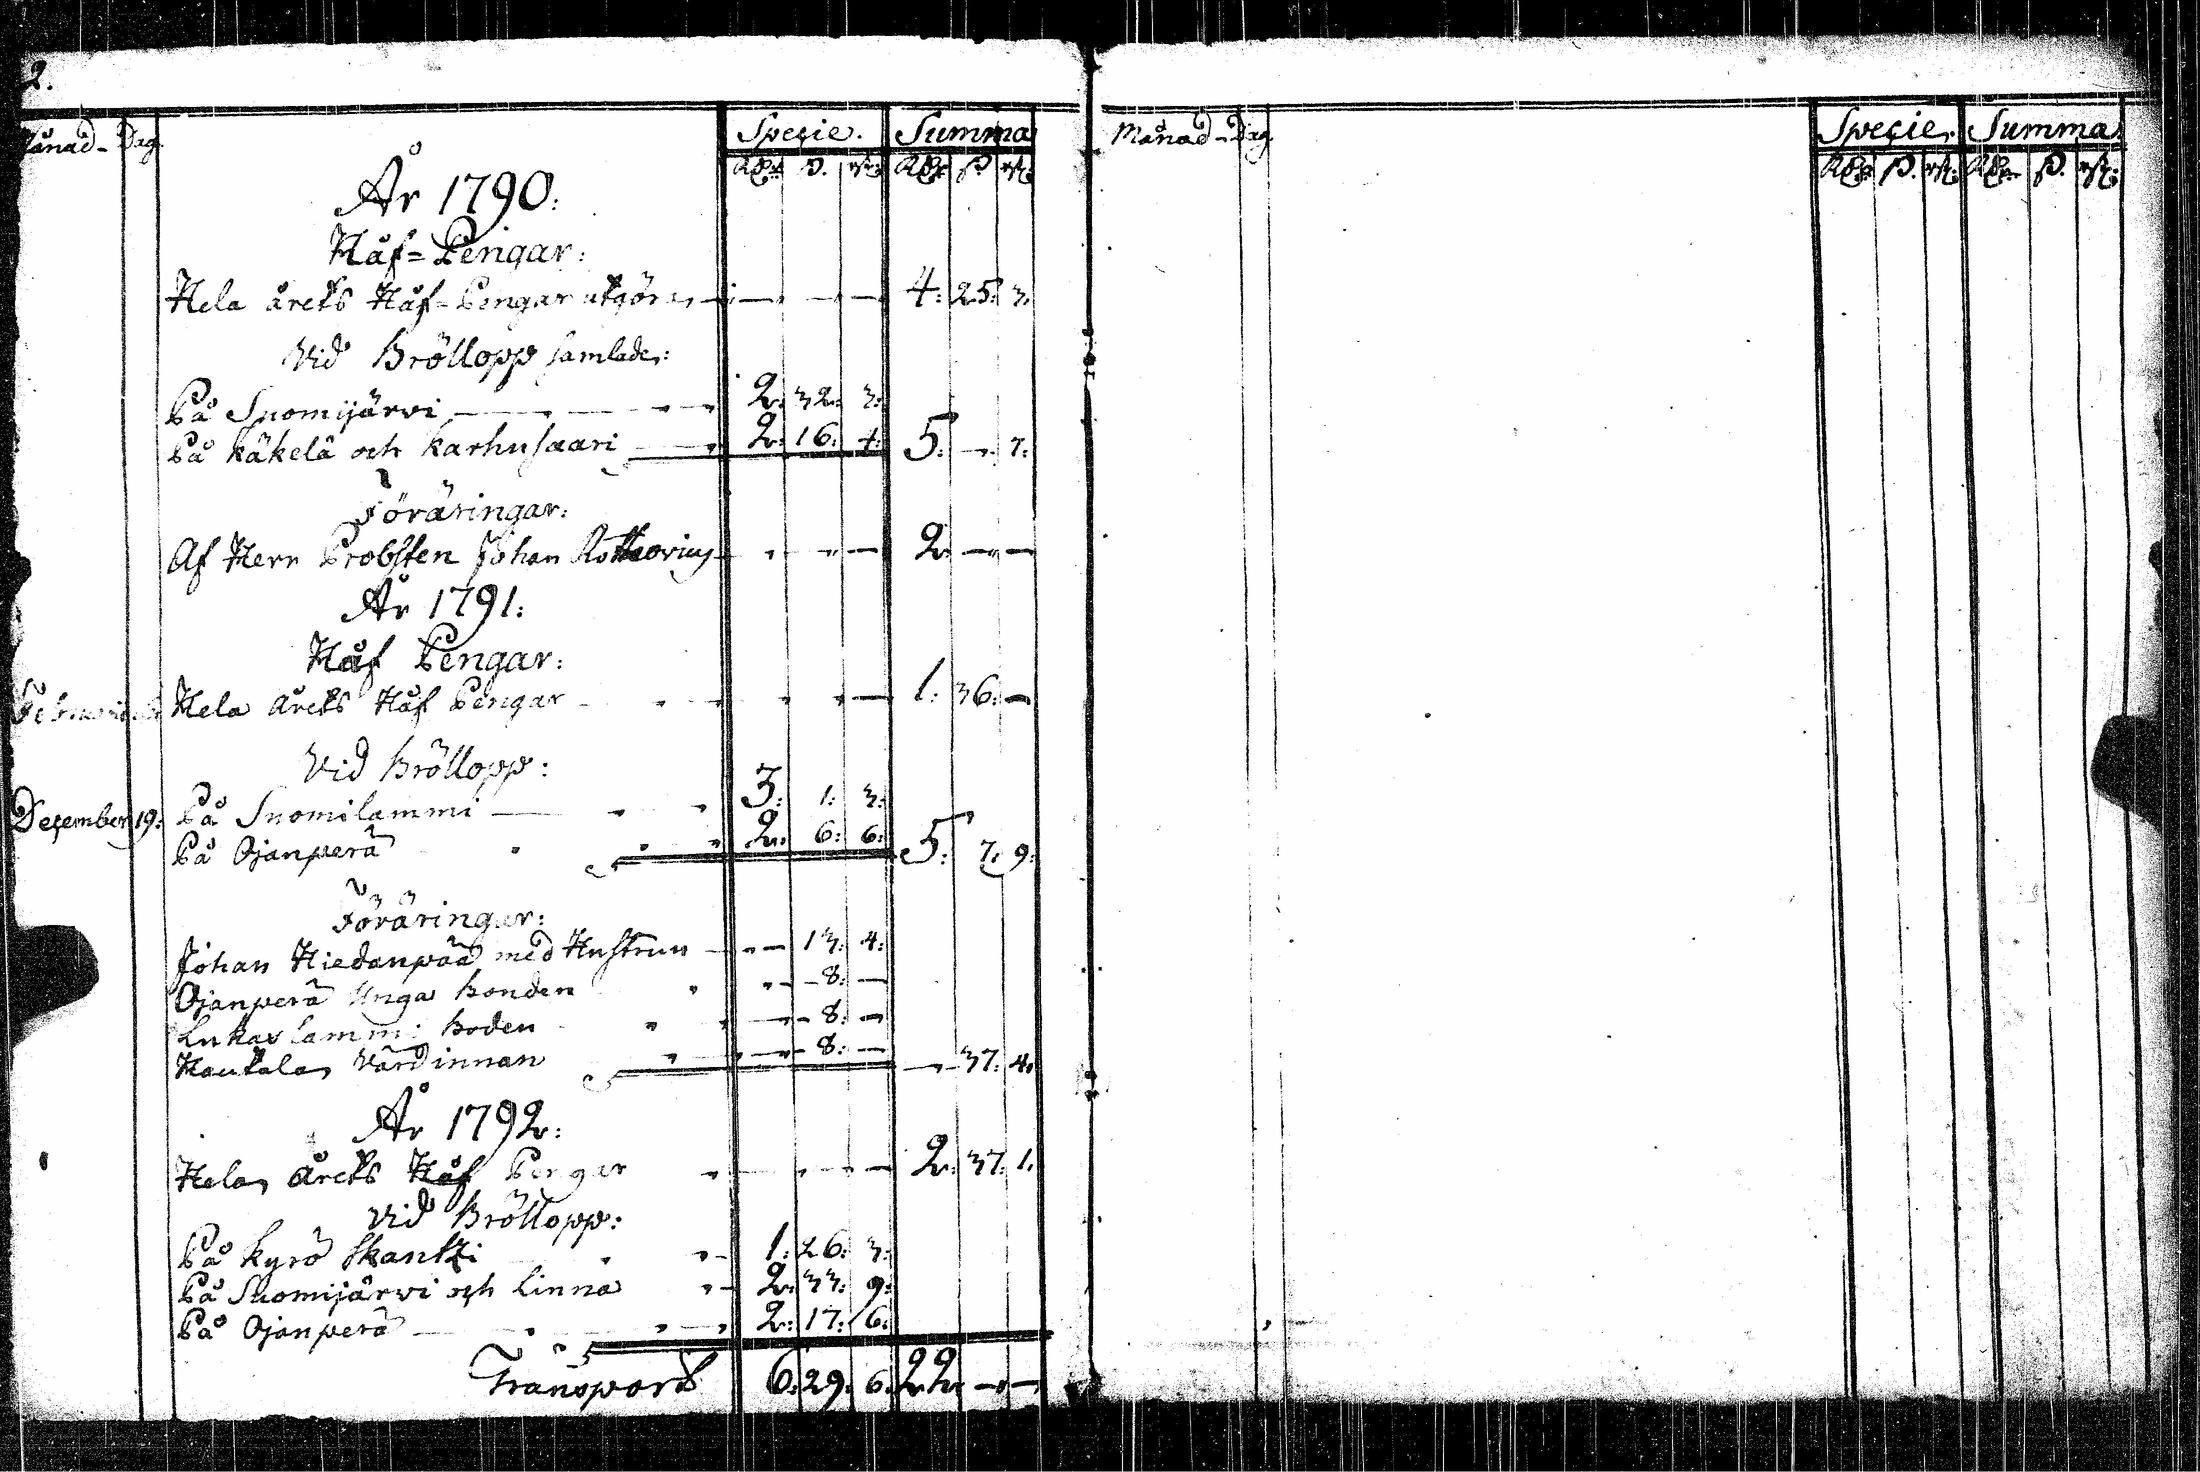 2.
Månad - Dag. Specie. Summa
Rd:r s. rst: Rd:r s. rst:
År 1790:
Håf=Pengar:
Hela årets Håf=Pengar utgöra 4: 25: 3.
Vid Bröllopp samlade:
På Suomijärvi 2: 32: 3:
På Käkelä och Karhusaari 2: 16: 4: 5: — 7:
Föräringar:
Af Herr Probsten Johan 2 — —
År 1791:
Håf Pengar:
Februarii Hela Årets Håf Pengar 1: 36: —
Vid Bröllopp:
December 19: På Suomilammi 3: 1: 3:
På Ojanperä 2: 6: 6: 5: 7: 9:
Föräringar:
Johan Hiedanpää med Hustrun — 13: 4:
Ojanperä Unga bonden — 8: —
Lukaslammi boden — 8: —
Hautala Värdinnan — 8: — — 37: 4:
År 1792:
Hela Årets Håf Pengar 2: 37: 1.
Vid Bröllopp:
På Kyrö Skantzi 1: 26: 3:
På Suomijärvi och Linna 2: 33: 9:
På Ojanperä 2: 17: 6:
Transport 6: 29: 6: 22 — —
Månad - Dag. Specie. Summa
Rd:r s. rst: Rd:r s. rst: